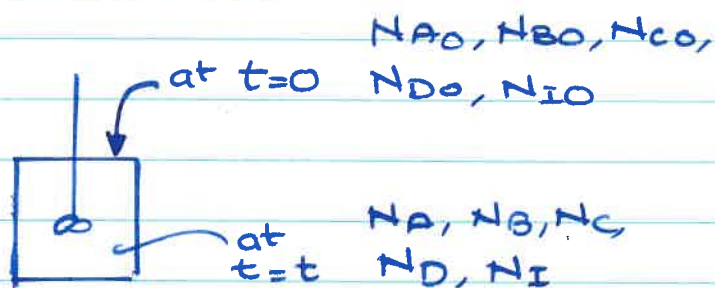 NA0, NB0, NC0,
at t=0 ND0, NI0
NA, NB, NC,
at
t=t ND, NI